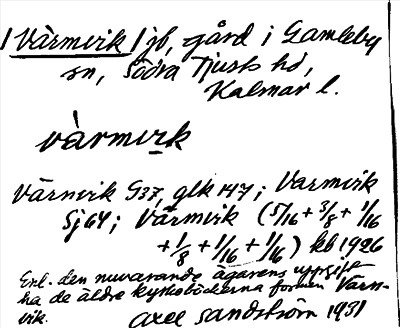 / Värmvik / jb, gård i Gamleby
sn, Södra Tjusts hd,
Kalmar l.
vàrmvi̱k
Värnvik G37, glk 1417; Varmvik
Sj64; Värmvik (5/16 + 3/8 + 1/16
+ 1/8 + 1/16 + 1/16) kb 1926
Enl. den nuvarande ägarens uppgift
ha de äldre kyrkoböckerna formen Värn-
vik.
Axel Sandström 1931